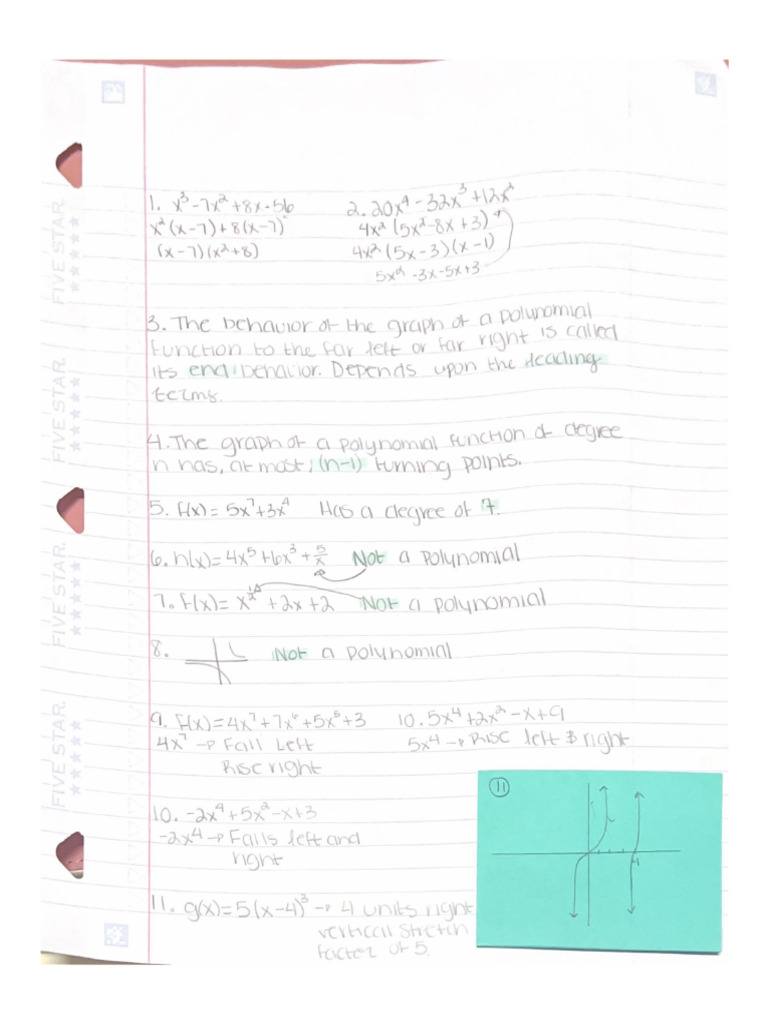 1. x³-7x²+8x-56
x²(x-7)+8(x-7)
(x-7)(x²+8)
2. 20x⁴-32x³+12x²
4x²(5x²-8x+3)
4x²(5x-3)(x-1)
5x²-3x-5x+3
3. The behavior of the graph of a polynomial
function to the far left or far right is called
its end behavior. Depends upon the leading
terms.
4. The graph of a polynomial function of degree
n has, at most, (n-1) turning points.
5. f(x)= 5x⁷+3x⁴ Has a degree of 7.
6. h(x)=4x⁵+6x³+5/x Not a polynomial
7. f(x)= x^1/2 +2x+2 Not a polynomial
8. Not a polynomial
9. f(x)=4x⁷+7x⁶+5x⁵+3
4x⁷→ Fall Left
Rise right
10. 5x⁴+2x²-x+9
5x⁴→ Rise left & right
10. -2x⁴+5x²-x+3
-2x⁴→ Falls left and
right
11. g(x)=5(x-4)³→ 4 units right
vertical stretch
factor of 5.
11
4
FIVE STAR
FIVE STAR
FIVE STAR
FIVE STAR